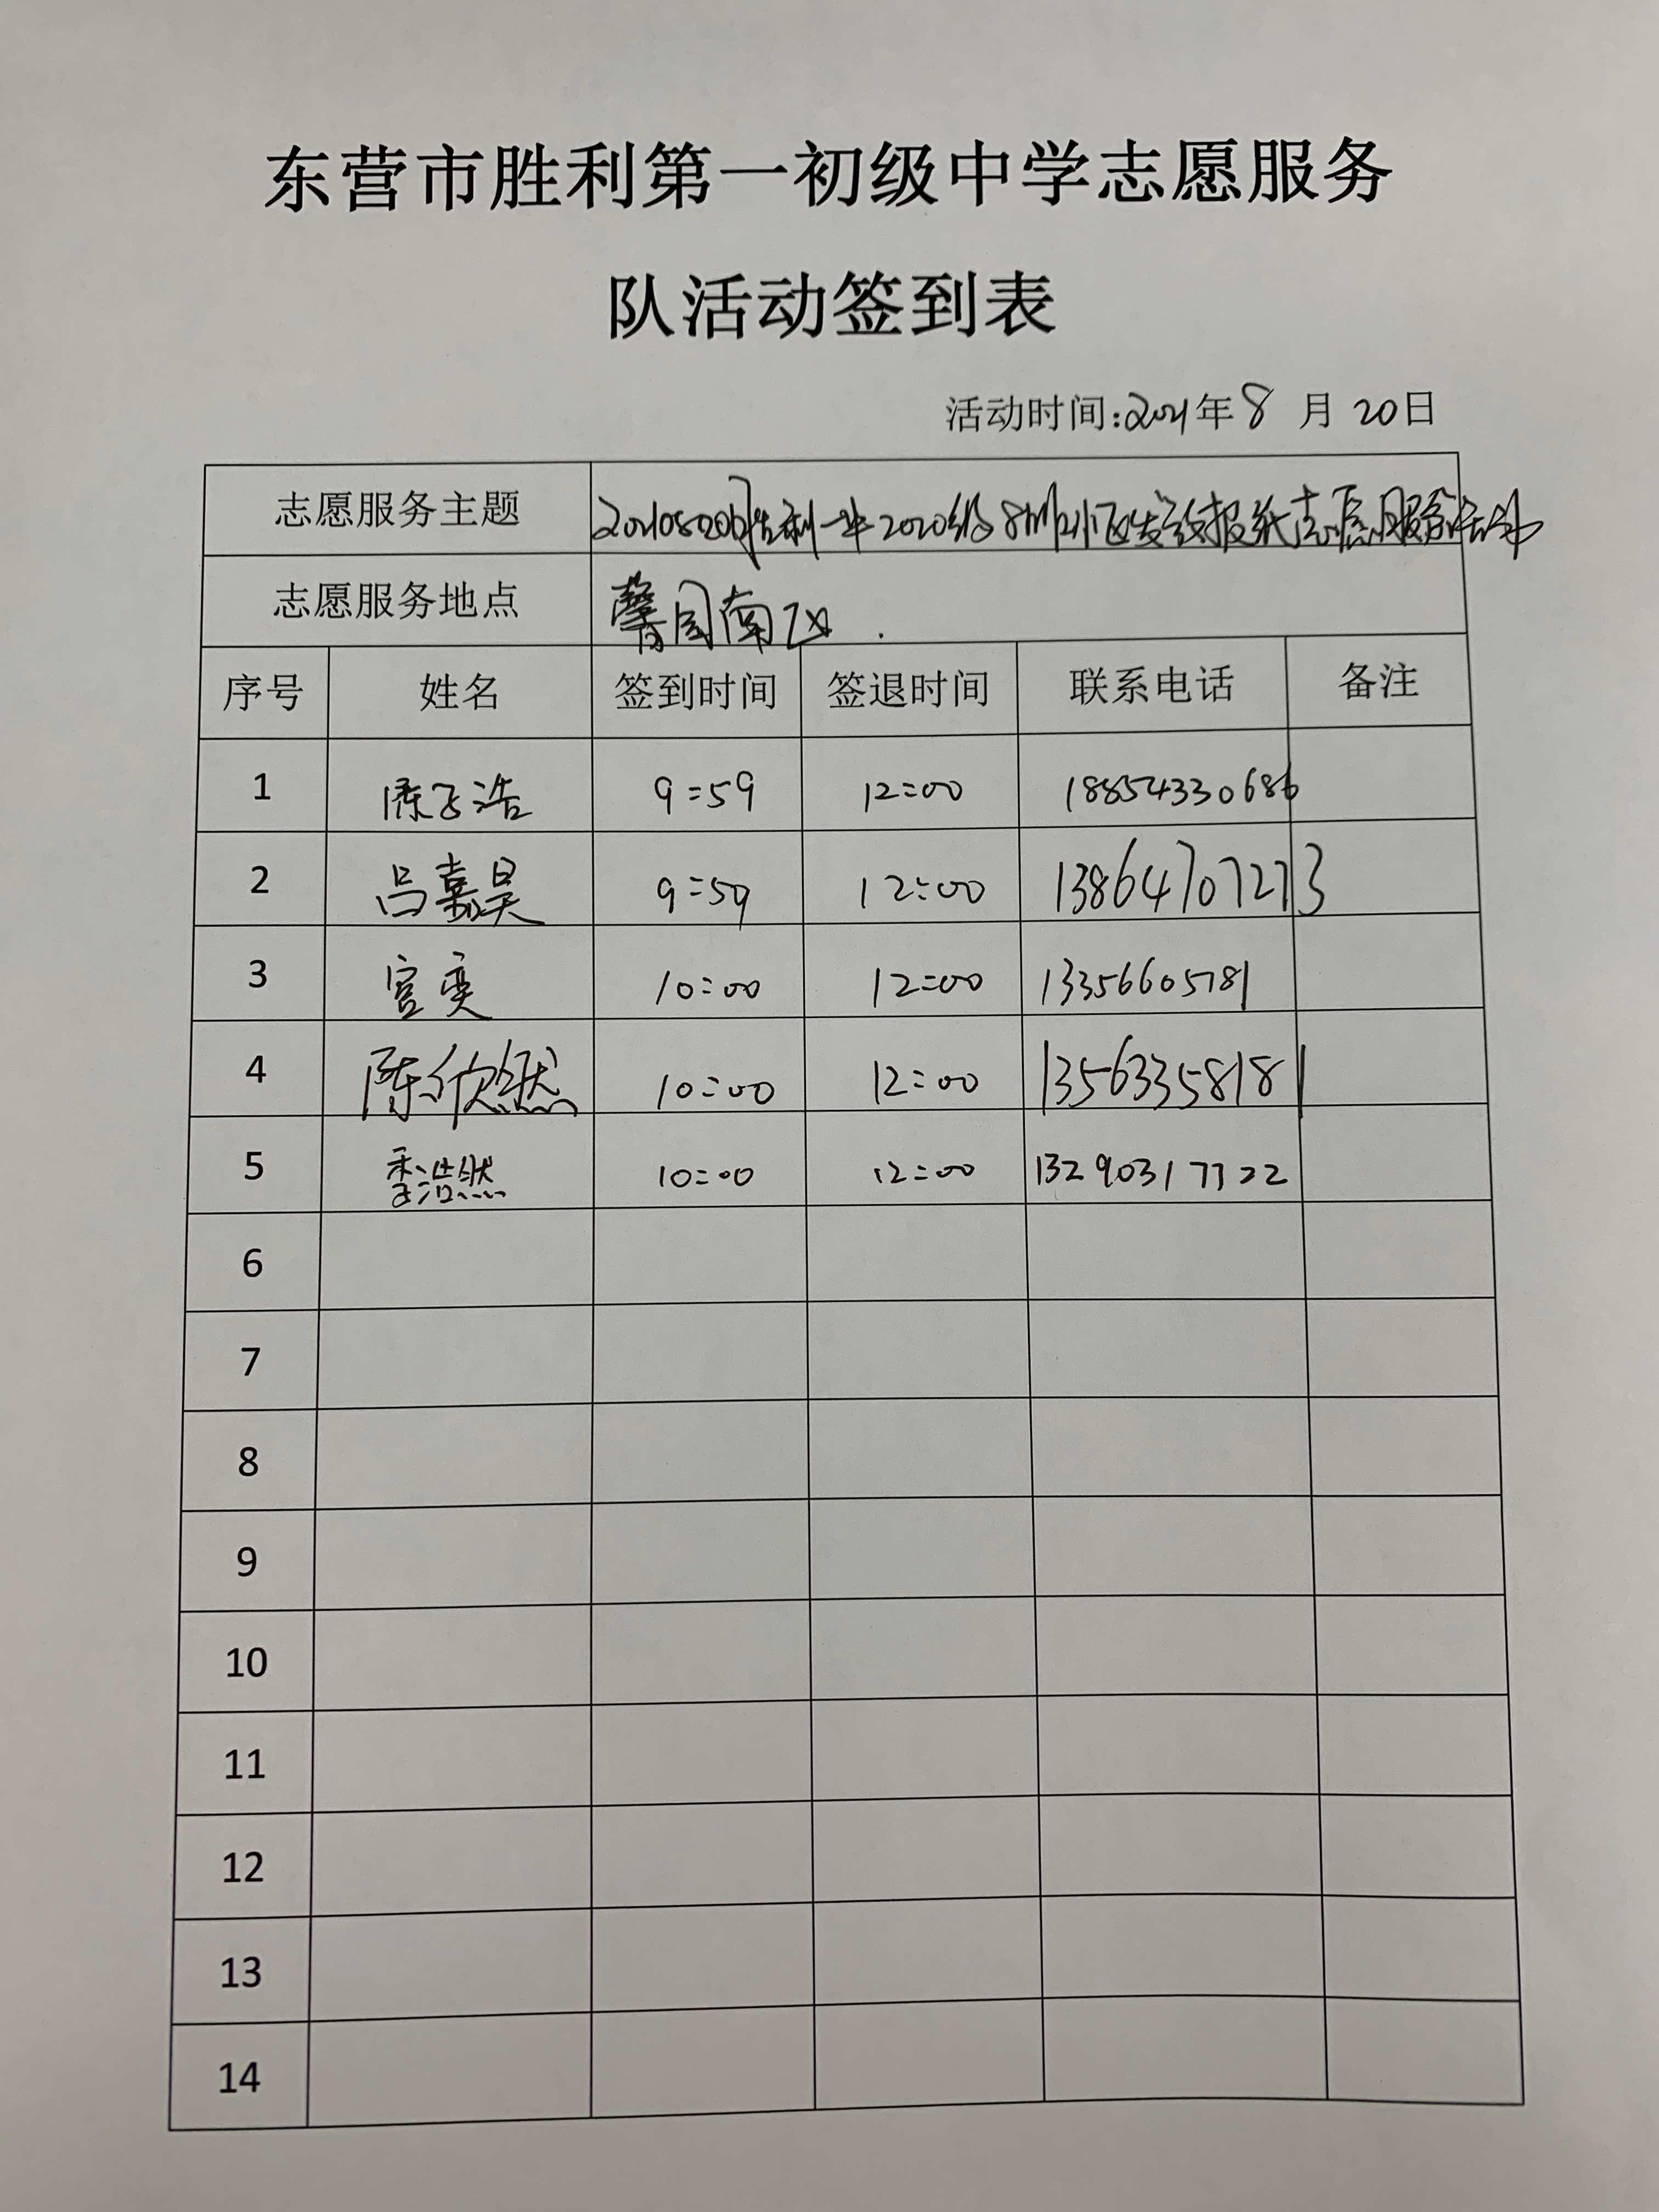 东营市胜利第一初级中学志愿服务
队活动签到表
活动时间:2021年8月20日
志愿服务主题 20210820胜利一中2020级8班小区发放报纸志愿服务活动
志愿服务地点 馨园南区.
序号 姓名 签到时间 签退时间 联系电话 备注
1 陈子浩 9:59 12:00 18854330686
2 吕嘉昊 9:59 12:00 13864707273
3 官奕 10:00 12:00 13356605781
4 陈欣然 10:00 12:00 13563358181
5 季浩然 10:00 12:00 13290317722
6
7
8
9
10
11
12
13
14